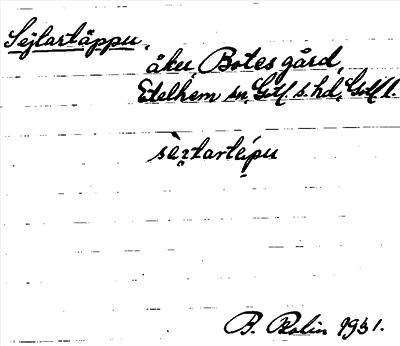 Sejlartäppu,
åker, Botes gård,
Etelhem sn, Gotl. s. hd, Gotl l.
sèɪlartèpu
B. Bolin 1931.